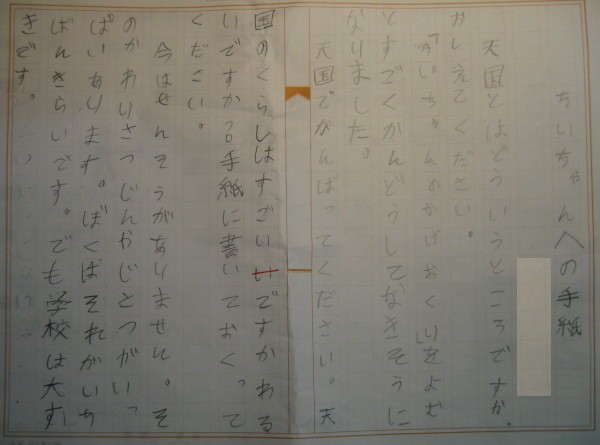 ちいちゃんへの手紙
天国とはどういうところですか。
おしえてください。
「ちいちゃんのかげおくり」をよむ
とすごくかんどうしてなきそうに
なりました。
天国でがんばってください。天
国のくらしはすごいいですかわる
いですか?手紙に書いておくって
ください。
今はせんそうがありません。そ
のかわりさつじんやじとつがいっ
ぱいあります。ぼくばそれがいち
ばんきらいです。でも学校は大す
きです。